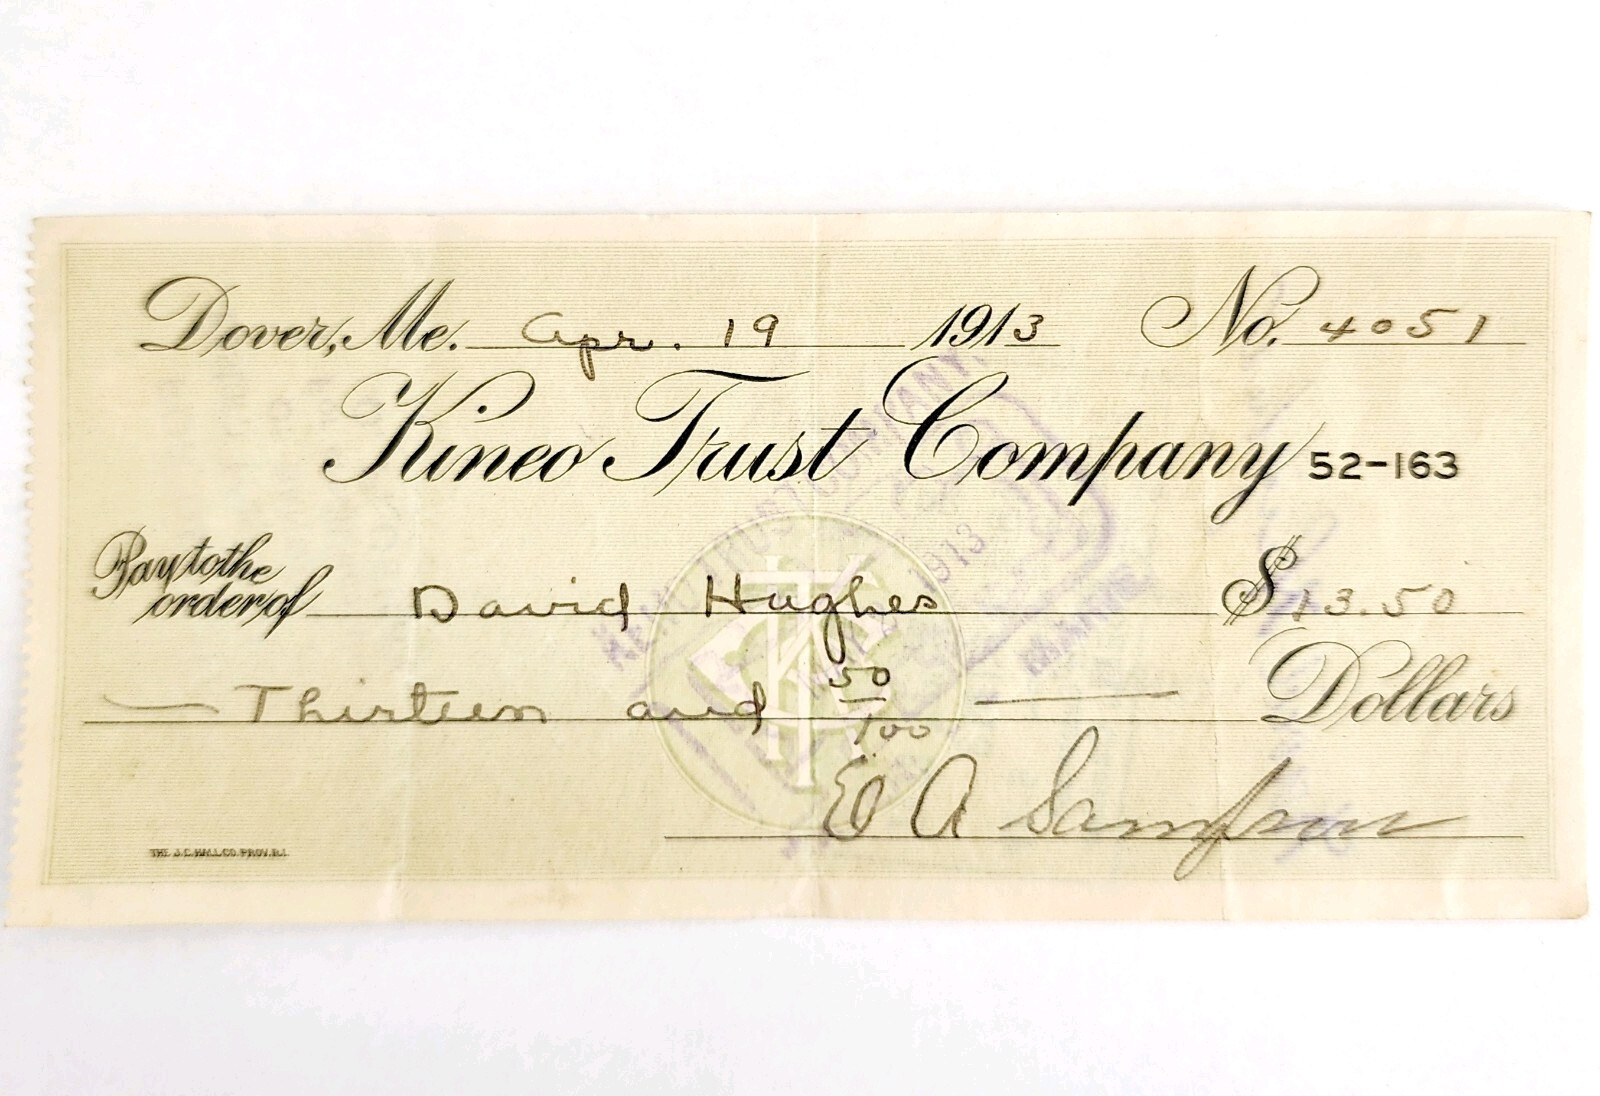 Dover, Me. Apr. 19 1913 No. 4051
Kineo Trust Company 52-163
Pay to the
order of David Hughes $13.50
Thirteen and 50/100 Dollars
E A Sampson
THE J.C. HALL CO. PROV. R.I.
TRUST COMPANY.
1913